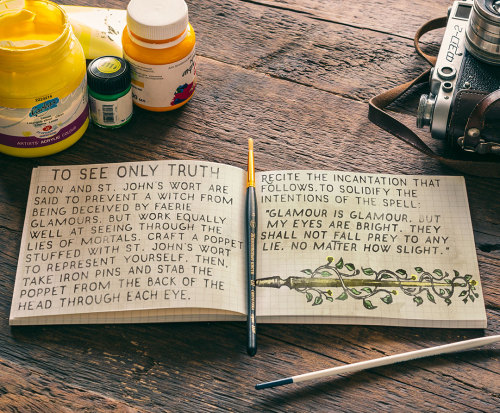 TO SEE ONLY TRUTH
IRON AND ST. JOHN'S WORT ARE
SAID TO PREVENT A WITCH FROM
BEING DECEIVED BY FAERIE
GLAMOURS, BUT WORK EQUALLY
WELL AT SEEING THROUGH THE
LIES OF MORTALS. CRAFT A POPPET
STUFFED WITH ST. JOHN'S WORT
TO REPRESENT YOURSELF. THEN,
TAKE IRON PINS AND STAB THE
POPPET FROM THE BACK OF THE
HEAD THROUGH EACH EYE.
RECITE THE INCANTATION THAT
FOLLOWS.TO SOLIDIFY THE
INTENTIONS OF THE SPELL:
"GLAMOUR IS GLAMOUR, BUT
MY EYES ARE BRIGHT. THEY
SHALL NOT FALL PREY TO ANY
LIE, NO MATTER HOW SLIGHT."